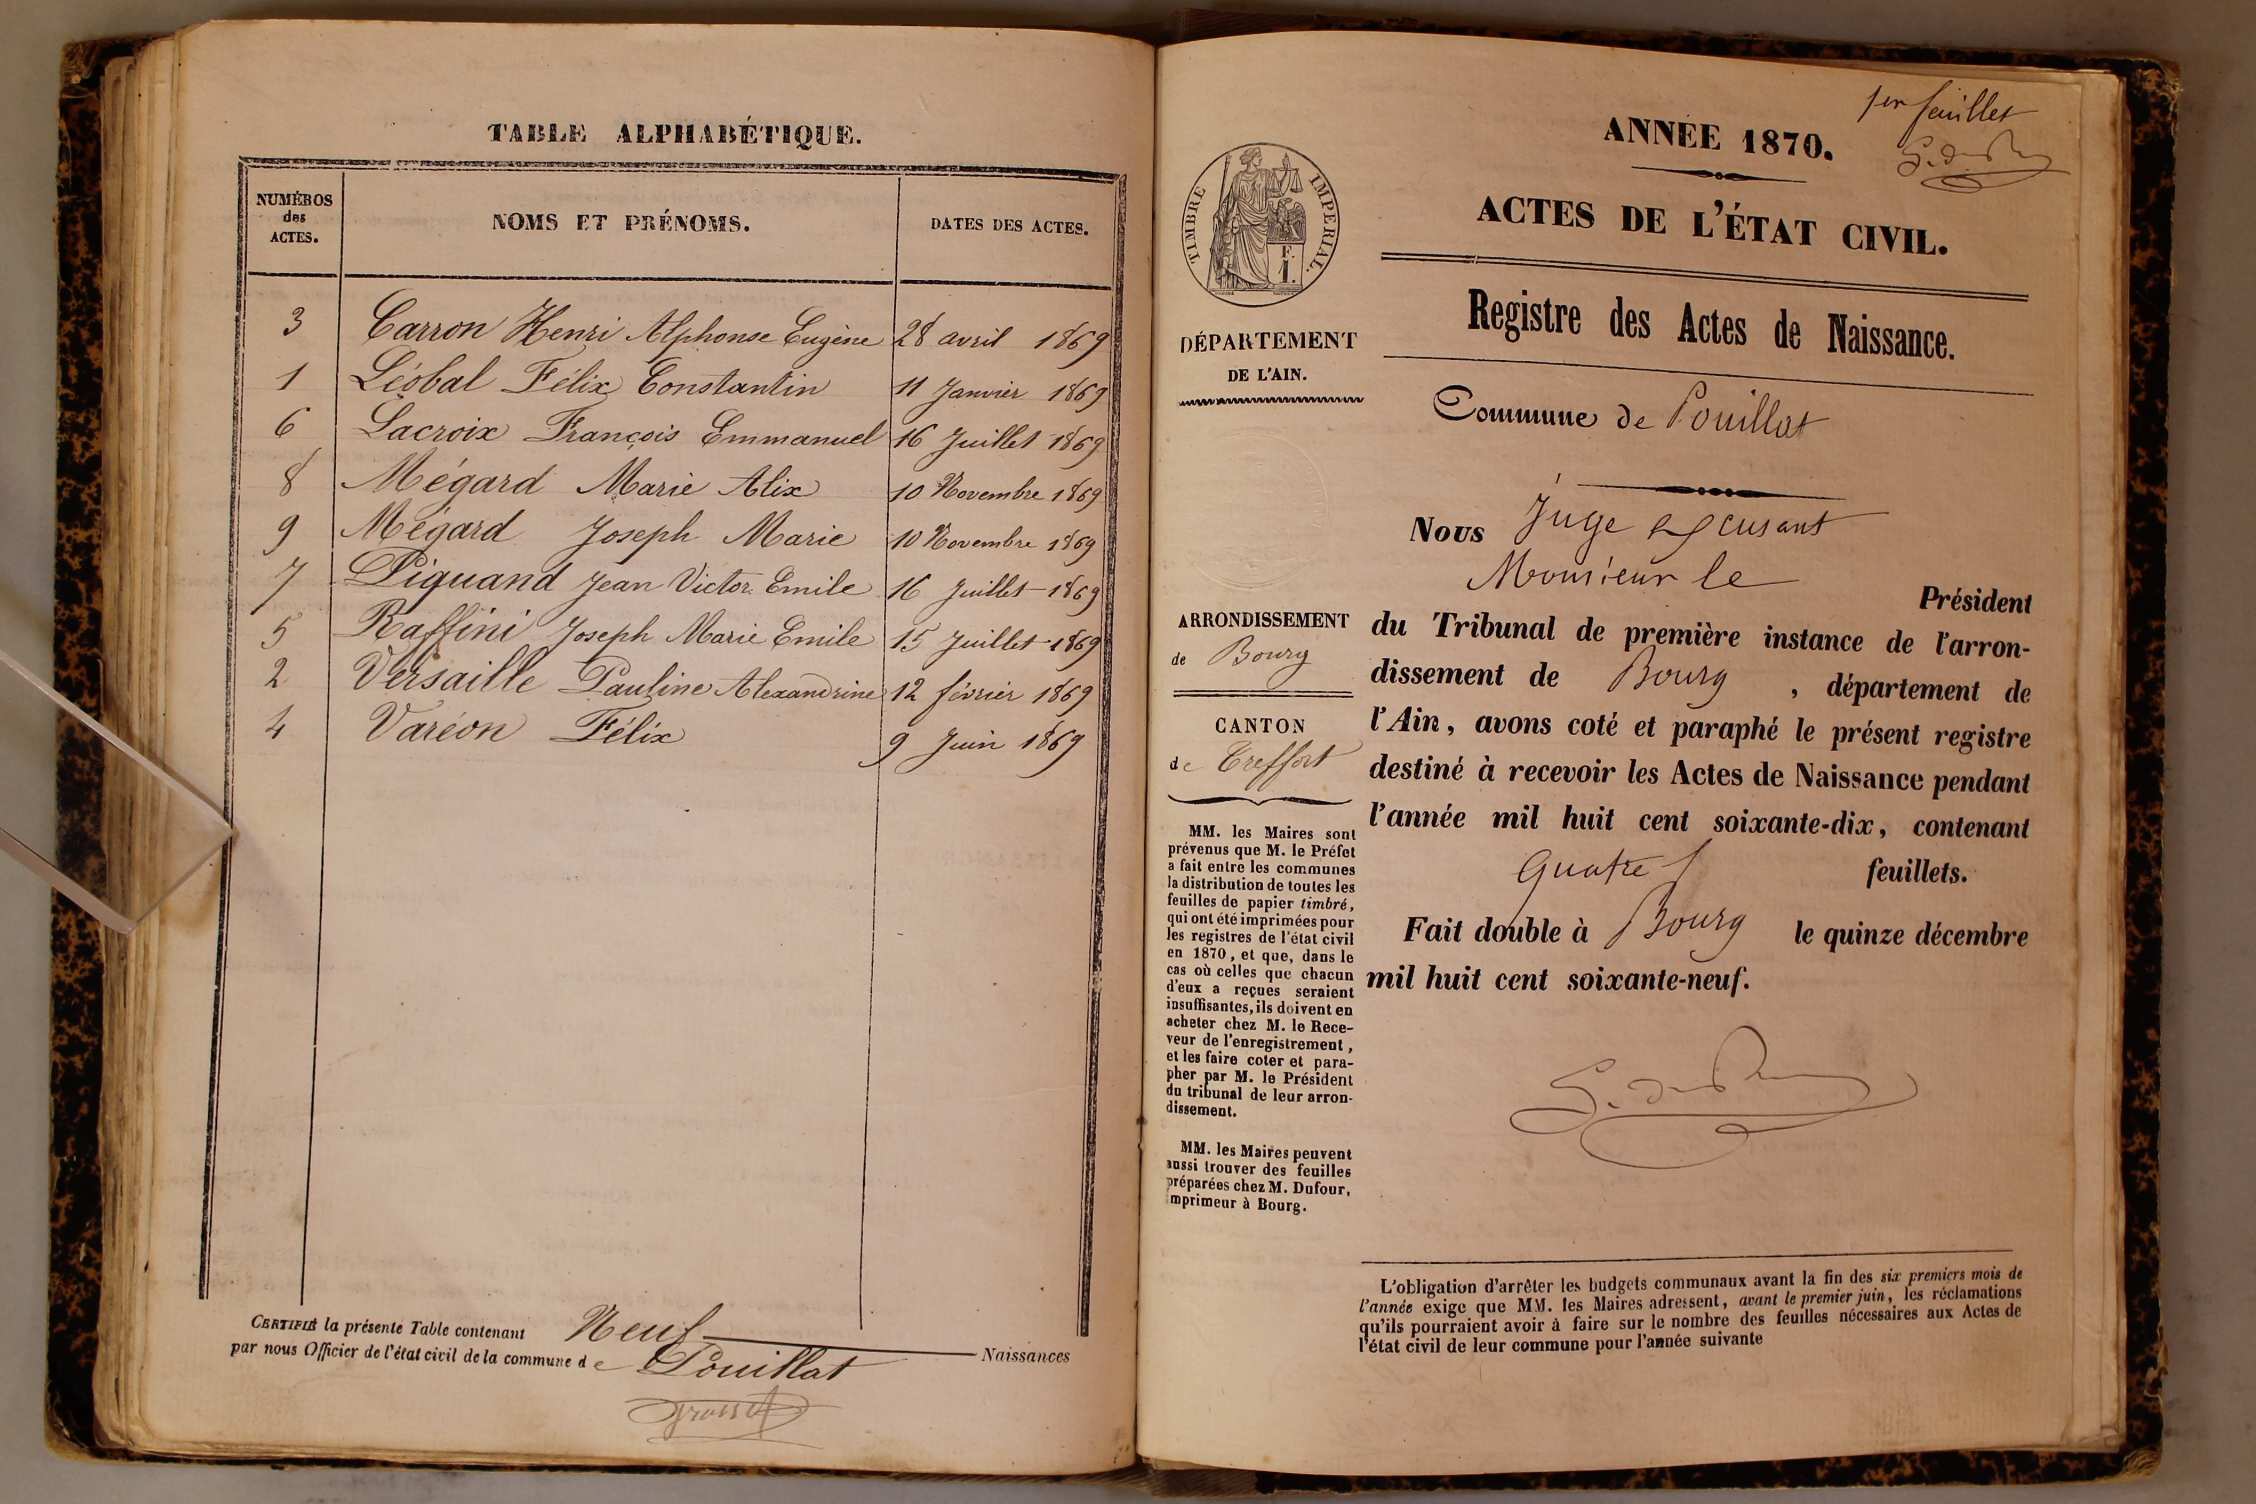 TABLE ALPHABÉTIQUE.
NUMÉROS
des
ACTES.
NOMS ET PRÉNOMS.
DATES DES ACTES.
3 Carron Henri Alphonse Eugène 28 avril 1869
1 Léobal Félix Constantin 11 Janvier 1869
6 Lacroix François Emmanuel 16 Juillet 1869
8 Mégard Marie Alix 10 Novembre 1869
9 Mégard Joseph Marie 10 Novembre 1869
7 Piquand Jean Victor Emile 16 Juillet 1869
5 Raffini Joseph Marie Emile 15 Juillet 1869
2 Versaille Pauline Alexandrine 12 février 1869
4 Varéon Félix 9 Juin 1869
CERTIFIÉ la présente Table contenant Neuf Naissances
par nous Officier de l'état civil de la commune de Pouillat
1er feuillet
ANNÉE 1870.
ACTES DE L'ÉTAT CIVIL.
Registre des Actes de Naissance.
Commune de Pouillat
TIMBRE IMPERIAL.
F.
1.
DÉPARTEMENT
DE L'AIN.
ARRONDISSEMENT
de Bourg
CANTON
de Treffort
MM. les Maires sont
prévenus que M. le Préfet
a fait entre les communes
la distribution de toutes les
feuilles de papier timbré,
qui ont été imprimées pour
les registres de l'état civil
en 1870, et que, dans le
cas où celles que chacun
d'eux a reçues seraient
insuffisantes, ils doivent en
acheter chez M. le Rece-
veur de l'enregistrement,
et les faire coter et para-
pher par M. le Président
du tribunal de leur arron-
dissement.
MM. les Maires peuvent
aussi trouver des feuilles
préparées chez M. Dufour,
imprimeur à Bourg.
Nous Juge excusant
Monsieur le
Président
du Tribunal de première instance de l'arron-
dissement de Bourg, département de
l'Ain, avons coté et paraphé le présent registre
destiné à recevoir les Actes de Naissance pendant
l'année mil huit cent soixante-dix, contenant
quatre feuillets.
Fait double à Bourg le quinze décembre
mil huit cent soixante-neuf.
L'obligation d'arrêter les budgets communaux avant la fin des six premiers mois de
l'année exige que MM. les Maires adressent, avant le premier juin, les réclamations
qu'ils pourraient avoir à faire sur le nombre des feuilles nécessaires aux Actes de
l'état civil de leur commune pour l'année suivante